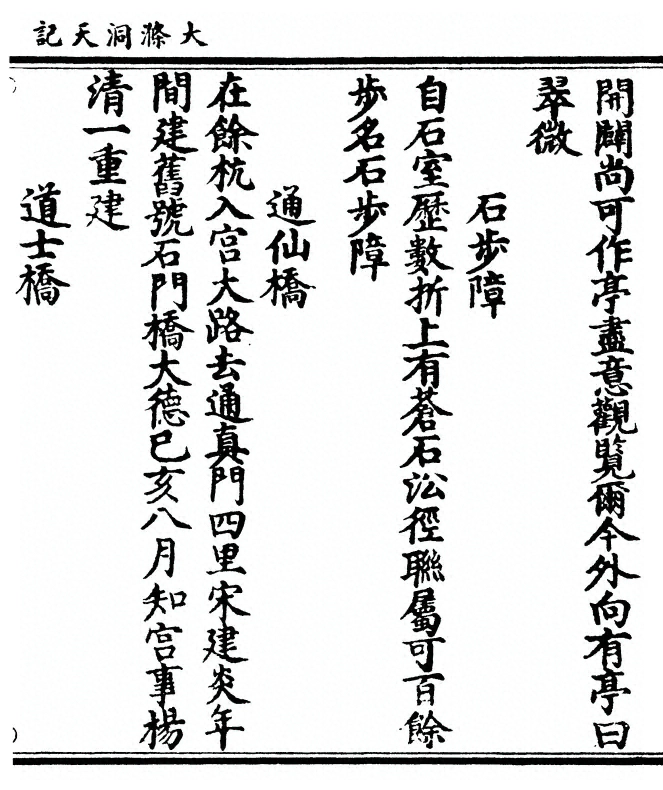 大滌洞天記
開闢尚可作亭盡意觀覽爾今外向有亭曰
翠微
石步障
自石室歷數折上有蒼石沿徑聯屬可百餘
步名石步障
通仙橋
在餘杭入宮大路去通真門四里宋建炎年
間建舊號石門橋大德己亥八月知宮事楊
清一重建
道士橋